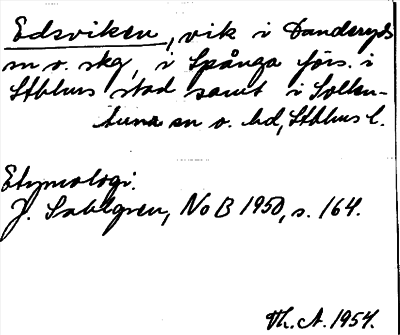 Edsviken, vik i Danderyds
sn o. skg, i Spånga förs. i
Sthlms stad samt i Sollen-
tuna sn o. hd, Sthlms l.
Etymologi.
J. Sahlgren, NoB 1950, s. 164.
Th. A. 1954.